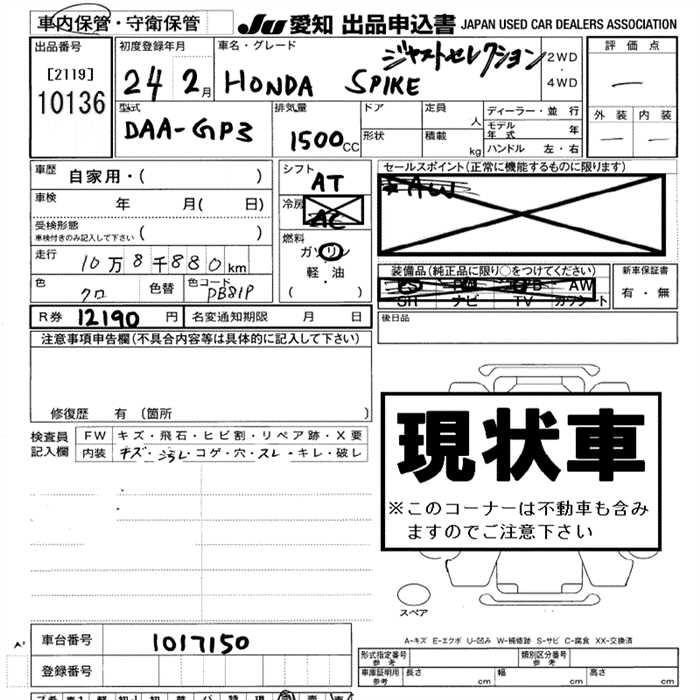 車内保管・守衛保管
JU 愛知 出品申込書 JAPAN USED CAR DEALERS ASSOCIATION
出品番号
[2119]
10136
初度登録年月
24 2月
車名・グレード
HONDA SPIKE ジャストセレクション
2WD
・
4WD
評価点
―
外装 内装
― ―
型式
DAA-GP3
排気量
1500CC
ドア
形状
定員 人
積載 kg
ディーラー・並行
モデル年式 年
ハンドル 左・右
車歴 自家用・( )
車検 年 月( 日)
受検形態
車検付きのみ記入して下さい ( )
走行 10万8千880km
色 クロ 色替 色コード PB81P
シフト
AT
冷房
AC
燃料
ガソリン
軽・油
( )
セールスポイント(正常に機能するものに限ります)
AW
装備品(純正品に限り○をつけてください)
PS PW AW
SR ナビ TV カワシート
新車保証書
有・無
後日品
R券 12190 円 名変通知期限 月 日
注意事項申告欄(不具合内容等は具体的に記入して下さい)
修復歴 有 (箇所 )
検査員記入欄
FW キズ・飛石・ヒビ割・リペア跡・X要
内装 キズ・汚れ・コゲ・穴・スレ・キレ・破レ
現状車
※このコーナーは不動車も含み
ますのでご注意下さい
スペア
A-キズ E-エクボ U-凹み W-補修跡 S-サビ C-腐食 XX-交換済
車台番号 1017150
登録番号
形式指定番号 参考
類別区分番号 参考
車庫証明用 参考 長さ cm 幅 cm 高さ cm